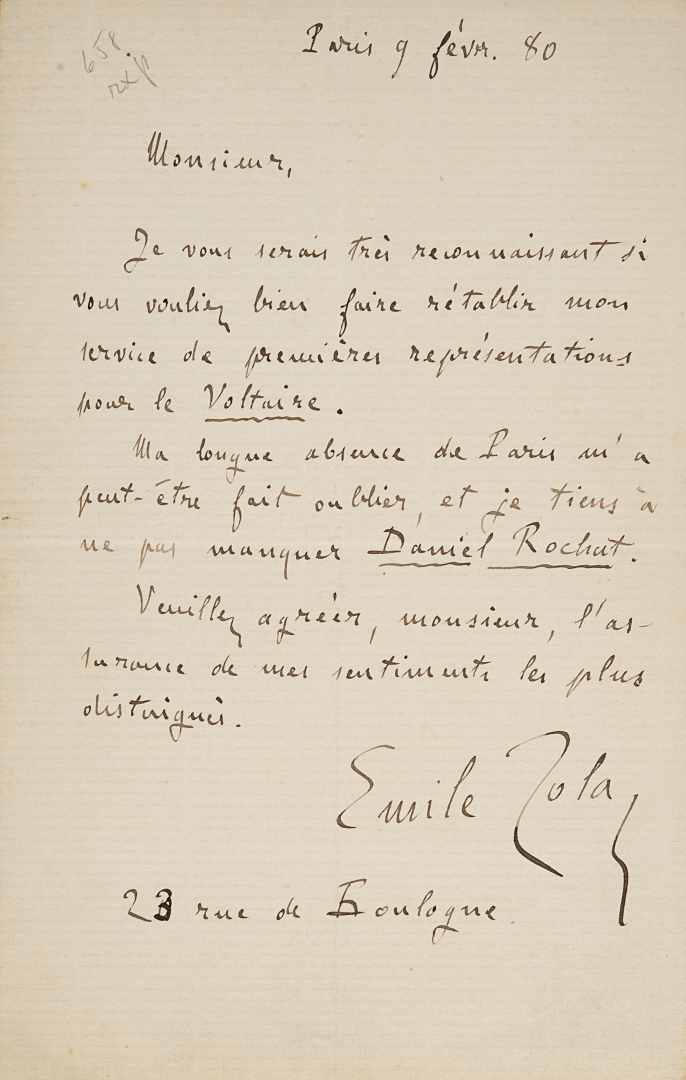 658
Paris 9 févr. 80
Monsieur,
Je vous serais très reconnaissant si
vous vouliez bien faire rétablir mon
service de premières représentations
pour le Voltaire.
Ma longue absence de Paris m'a
peut-être fait oublier, et je tiens à
ne pas manquer Daniel Rochat.
Veuillez agréer, monsieur, l'as-
surance de mes sentiments les plus
distingués.
Emile Zola
23 rue de Boulogne.